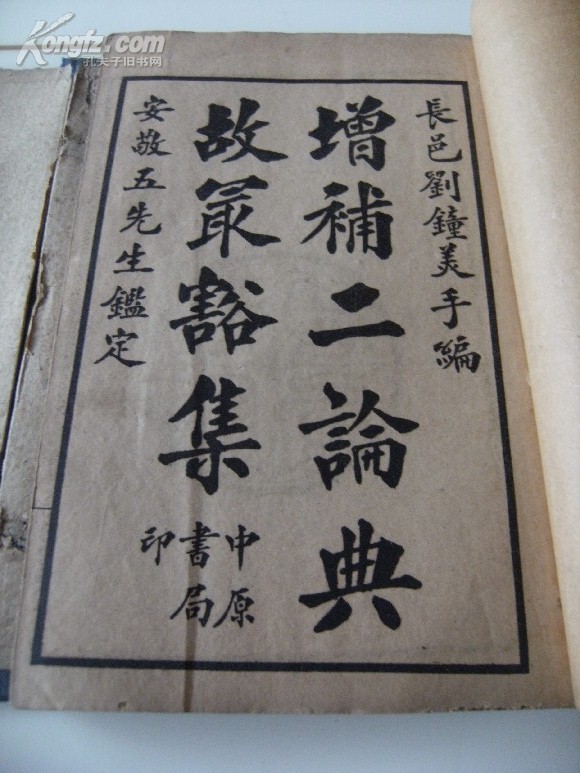 長邑劉鐘美手編
增補二論典
故冣豁集
中原
書局
印
安敬五先生鑑定
Kongfz.com
孔夫子旧书网